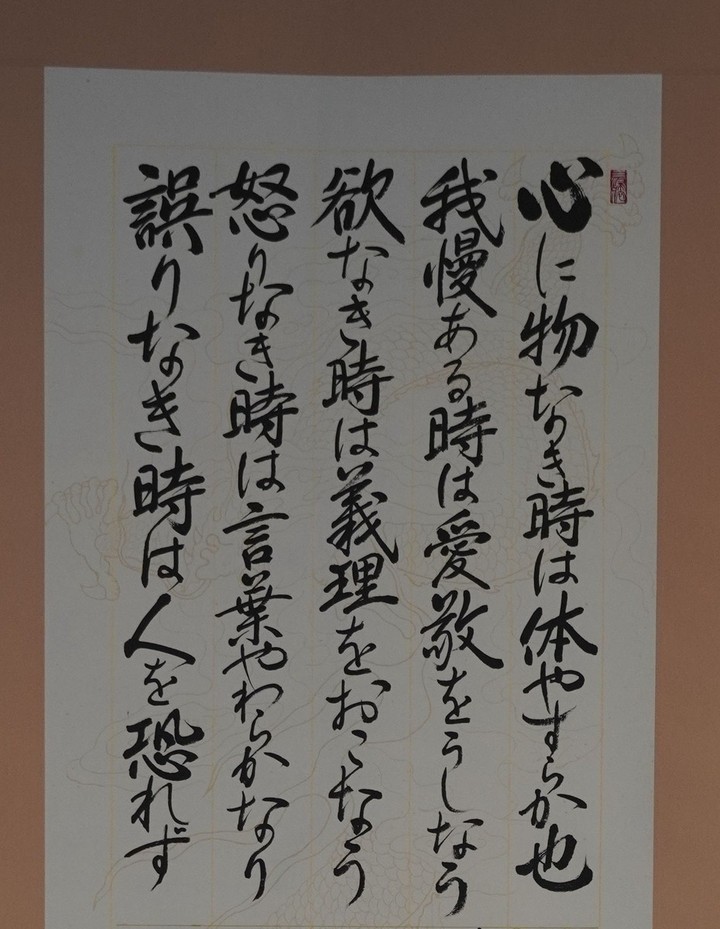 心に物なき時は体やすらか也
我慢ある時は愛敬をうしなう
欲なき時は義理をおこなう
怒りなき時は言葉やわらかなり
誤りなき時は人を恐れず